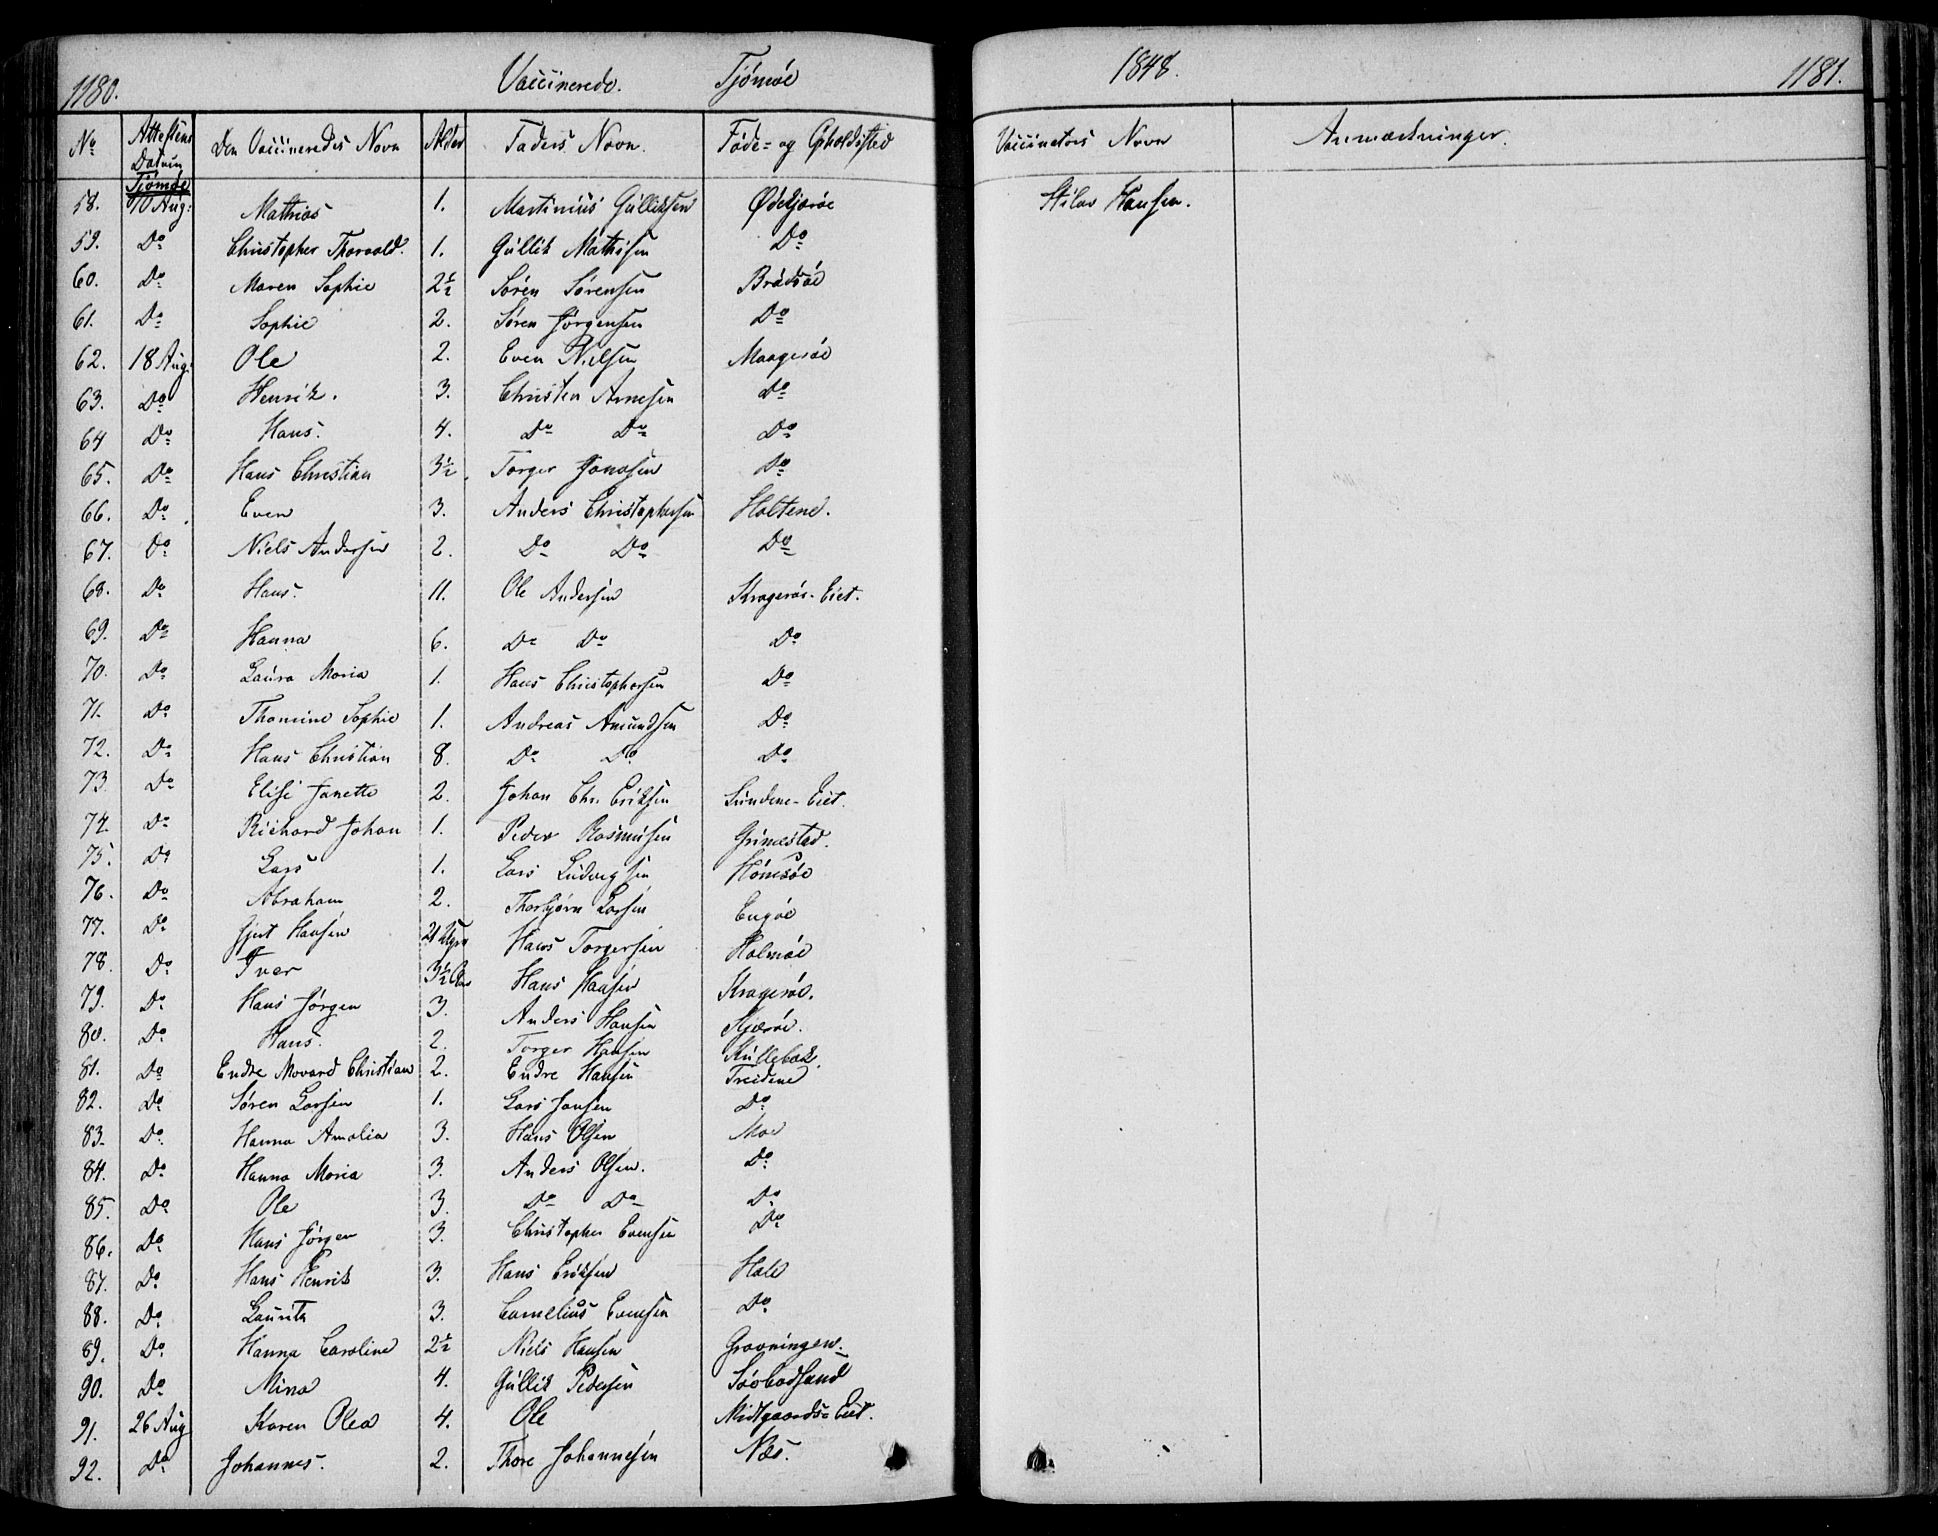 1180. Vaccinerede. Tjömöe 1848. 1181.
No Attestens Datum Den Vaccineredes Navn Alder Faders Navn. Föde- og Opholdssted Vaccinators Navn Anmærkninger.
Tjömöe
58. 10 Aug: Mathias 1. Martinius Gulliksen Ödekjæröe Stiler Hansen.
59. Do Christopher Thorvald. 1. Gullik Mathisen Do
60. Do Maren Sophie 2½ Sören Sörensen Brödsöe
61. Do Sophie 2. Sören Jörgensen Do
62. 18 Aug: Ole 2. Even Nielsen Maageröe
63. Do Henrik. 3. Christen Arnesen Do
64 Do Hans. 4. Do Do Do
65. Do Hans Christian 3½. Torger Jonasen Do
66. Do Even 3. Anders Christophersen Holtene.
67. Do Niels Andersen 2. Do Do Do
68. Do Hans. 11. Ole Andersen Krageröe-Eiet.
69. Do Hanna 6. Do Do Do
70. Do Laura Maria 1. Hans Christophersen Do
71. Do Thomine Sophie 1. Andreas Amundsen Do
72. Do Hans Christian 8. Do Do Do
73. Do Elise Janette 2. Johan Chr. Eriksen Sundene-Eiet.
74. Do Richard Johan 1. Peder Rasmusen Grimestad.
75. Do Lars 1. Lars Ludvigsen Hönesöe
76. Do Abraham 2. Thorbjörn Larsen Engöe
77. Do Gjert Hansen 21 Uger Hans Torgersen Holmöe
78. Do Iver 3½ Aar Hans Hansen Krageröe.
79. Do Hans Jörgen 3. Anders Hansen Kjæröe.
80. Do Hans. 2. Torger Hansen Kullebæk.
81. Do Endre Movard Christian 2. Endre Hansen Treidene
82. Do Sören Larsen 1. Lars Jansen Do
83. Do Hanna Amalia 3. Hans Olsen Moe
84. Do Hanna Maria 3. Anders Olsen. Do
85. Do Ole 3. Do Do Do
86. Do Hans Jörgen 3. Christopher Evensen Do
87. Do Hans Henrik 3. Hans Eriksen Hale
88. Do Lauritz 3. Cornelius Evensen Do
89. Do Hanna Caroline 2½ Niels Hansen Gravningen.
90. Do Mina 4. Gullik Pedersen Söebodsand
91. 26 Aug Karen Olea 4. Ole Midtgaards-Eiet.
92. Do Johannes. 2. Thore Johannesen Næs.